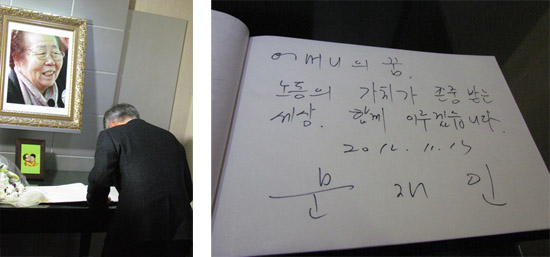 어머니의 꿈.
노동의 가치가 존중 받는
세상. 함께 이루겠습니다.
2012. 11. 13
문 재 인